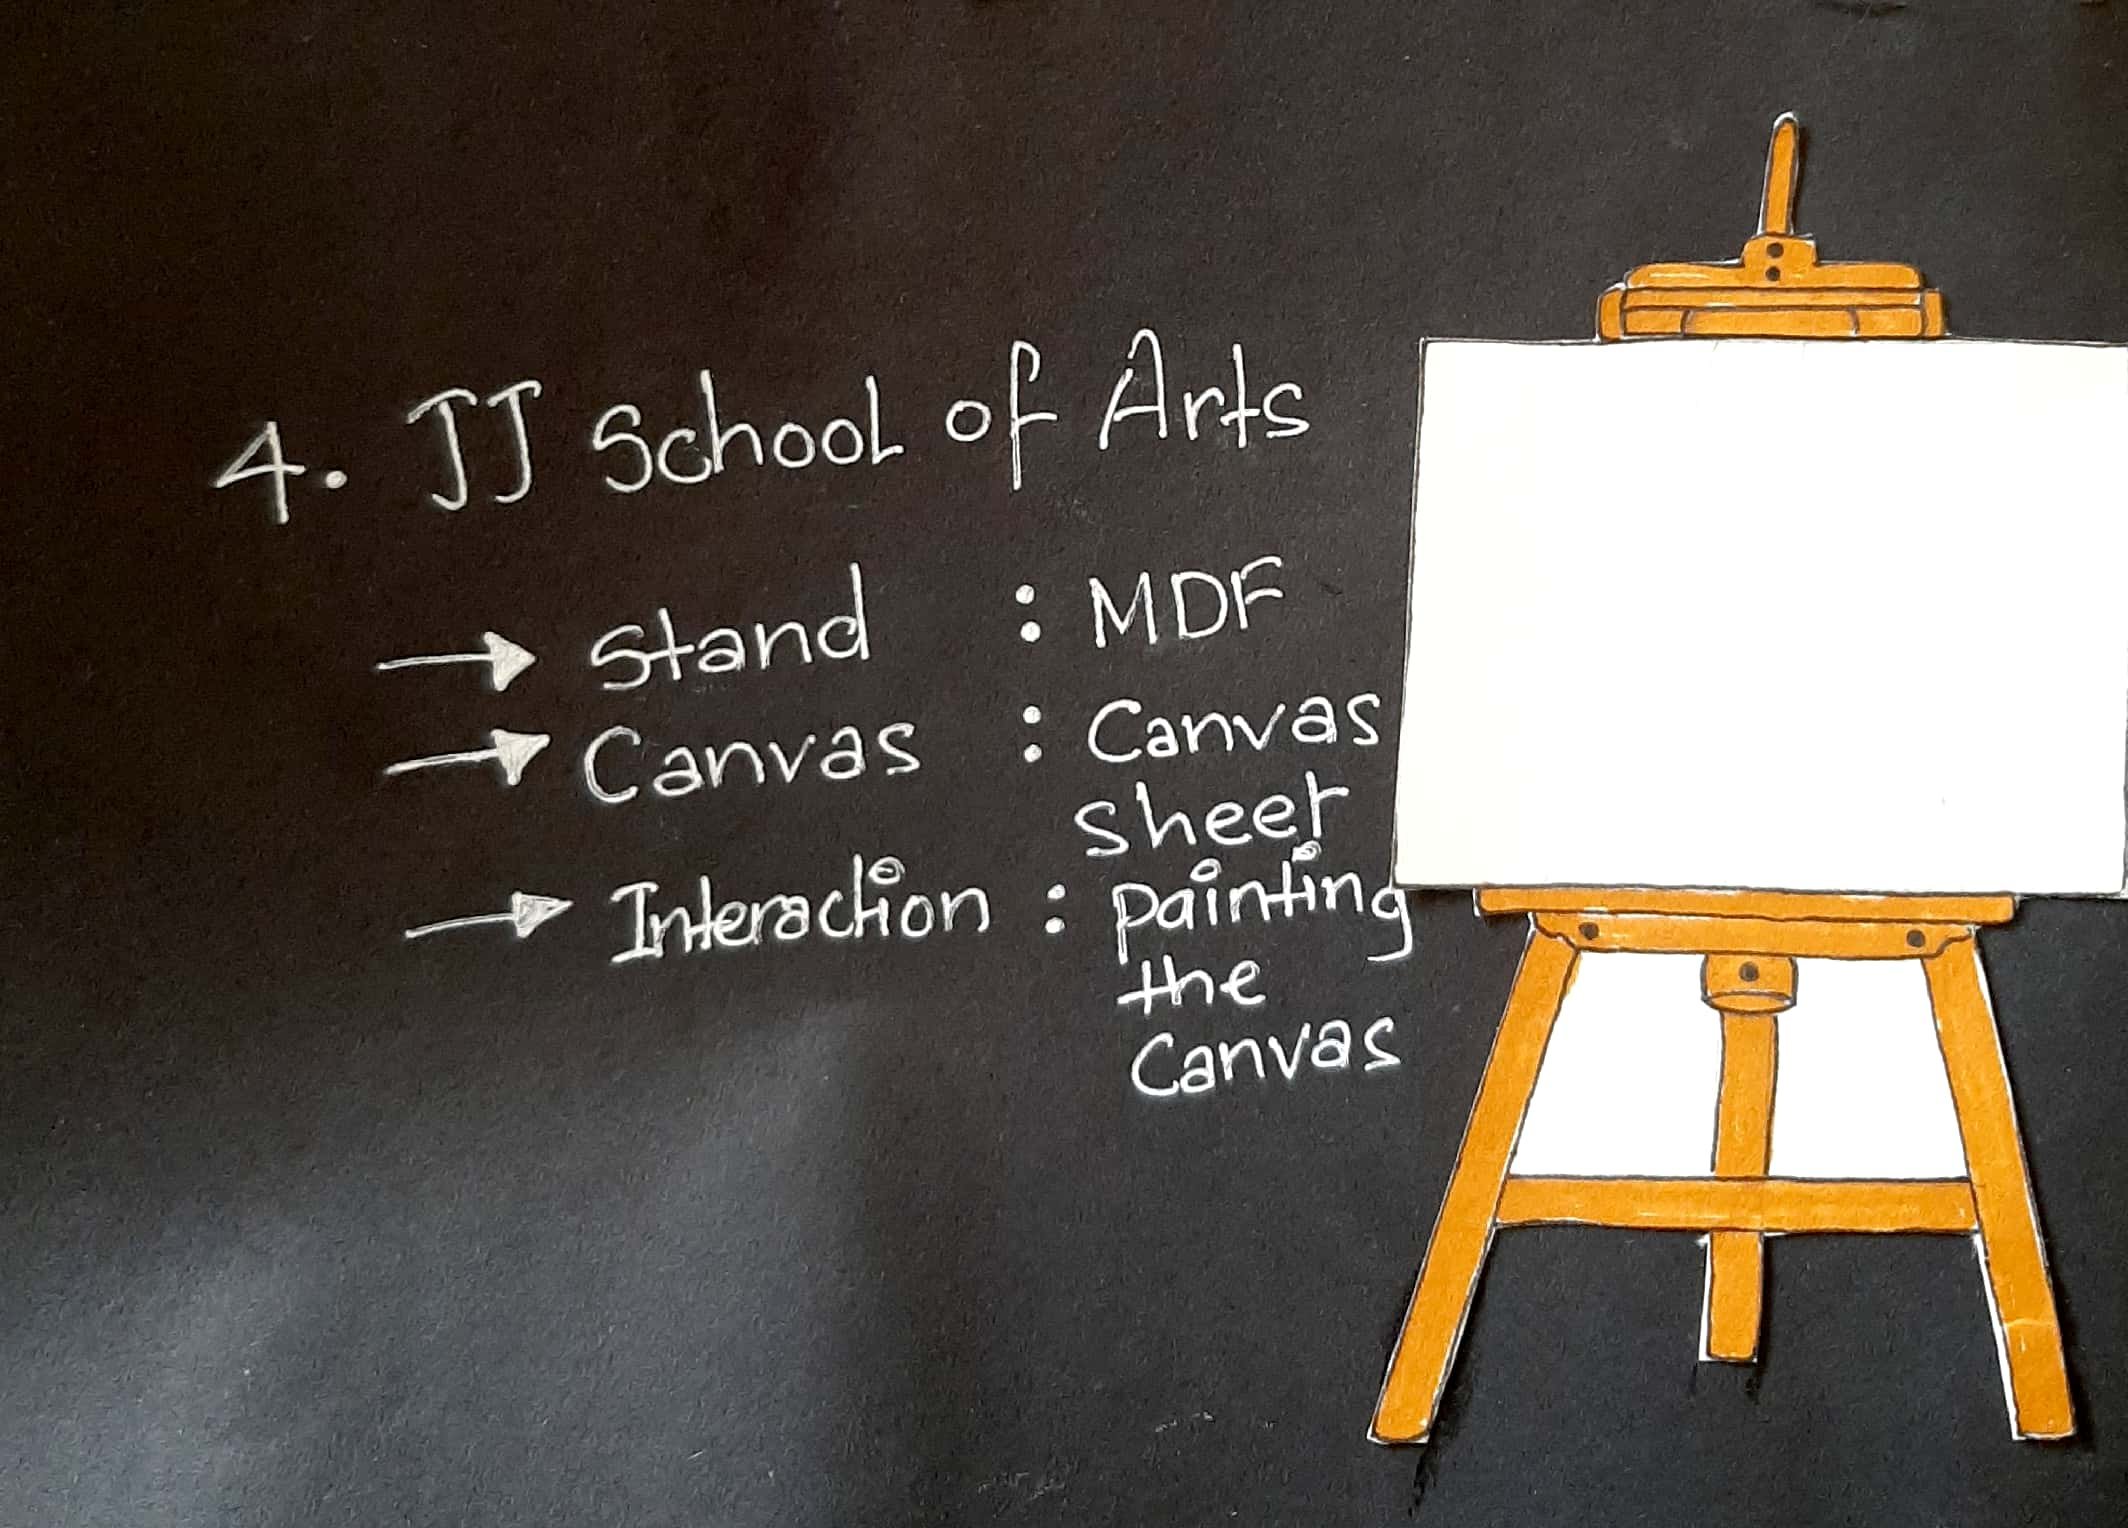 4. JJ School of Arts
→ Stand : MDF
→ Canvas : Canvas
sheet
→ Interaction : painting
the
Canvas